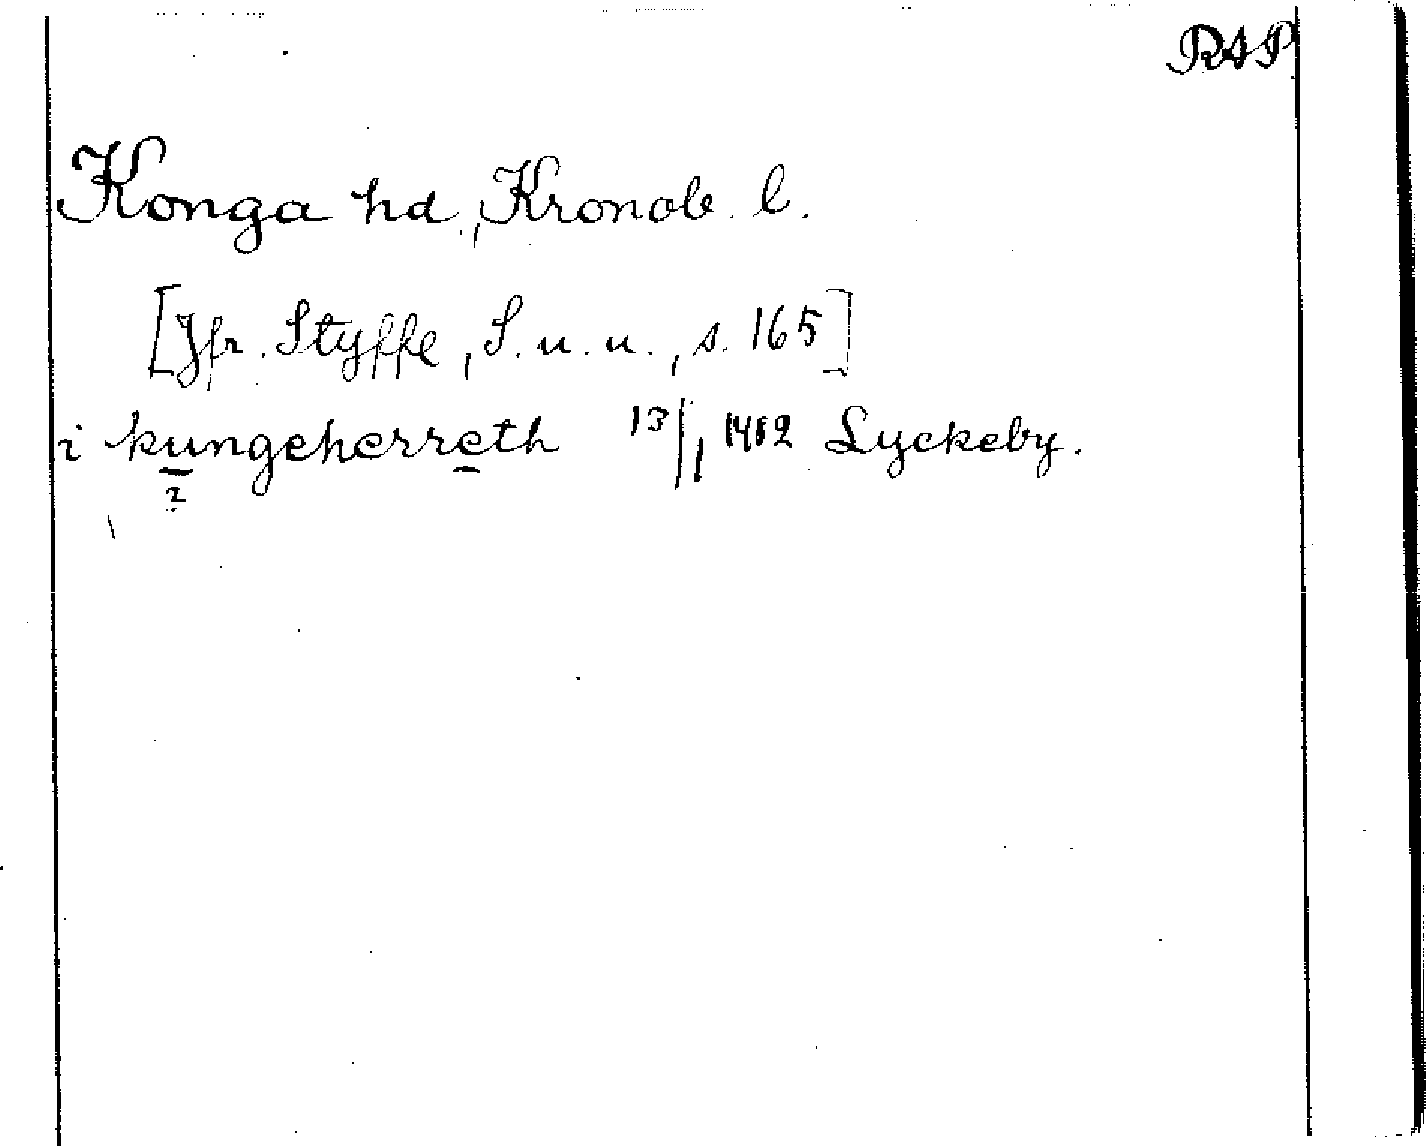 RAP
Konga hd., Kronob. l.
[Jfr. Styffe, S. u. u., s. 165]
i kungeherreth 13/1 1482 Lyckeby.